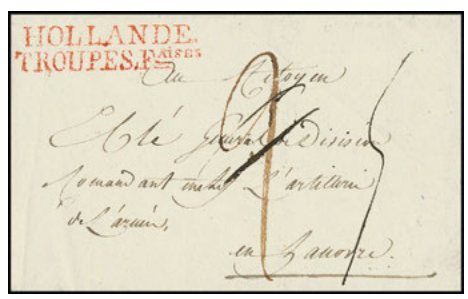 HOLLANDE.
TROUPES.Fᴬᴵˢᴱˢ
Au Citoyen
Eblé Général de Division
Comandant en chef L'artillerie
de L'armée,
en Hanovre.